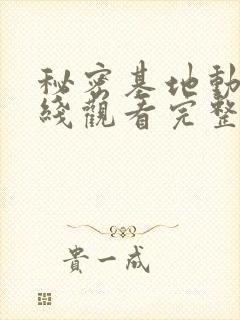 秘密基地動
綫觀看完整
貴一成